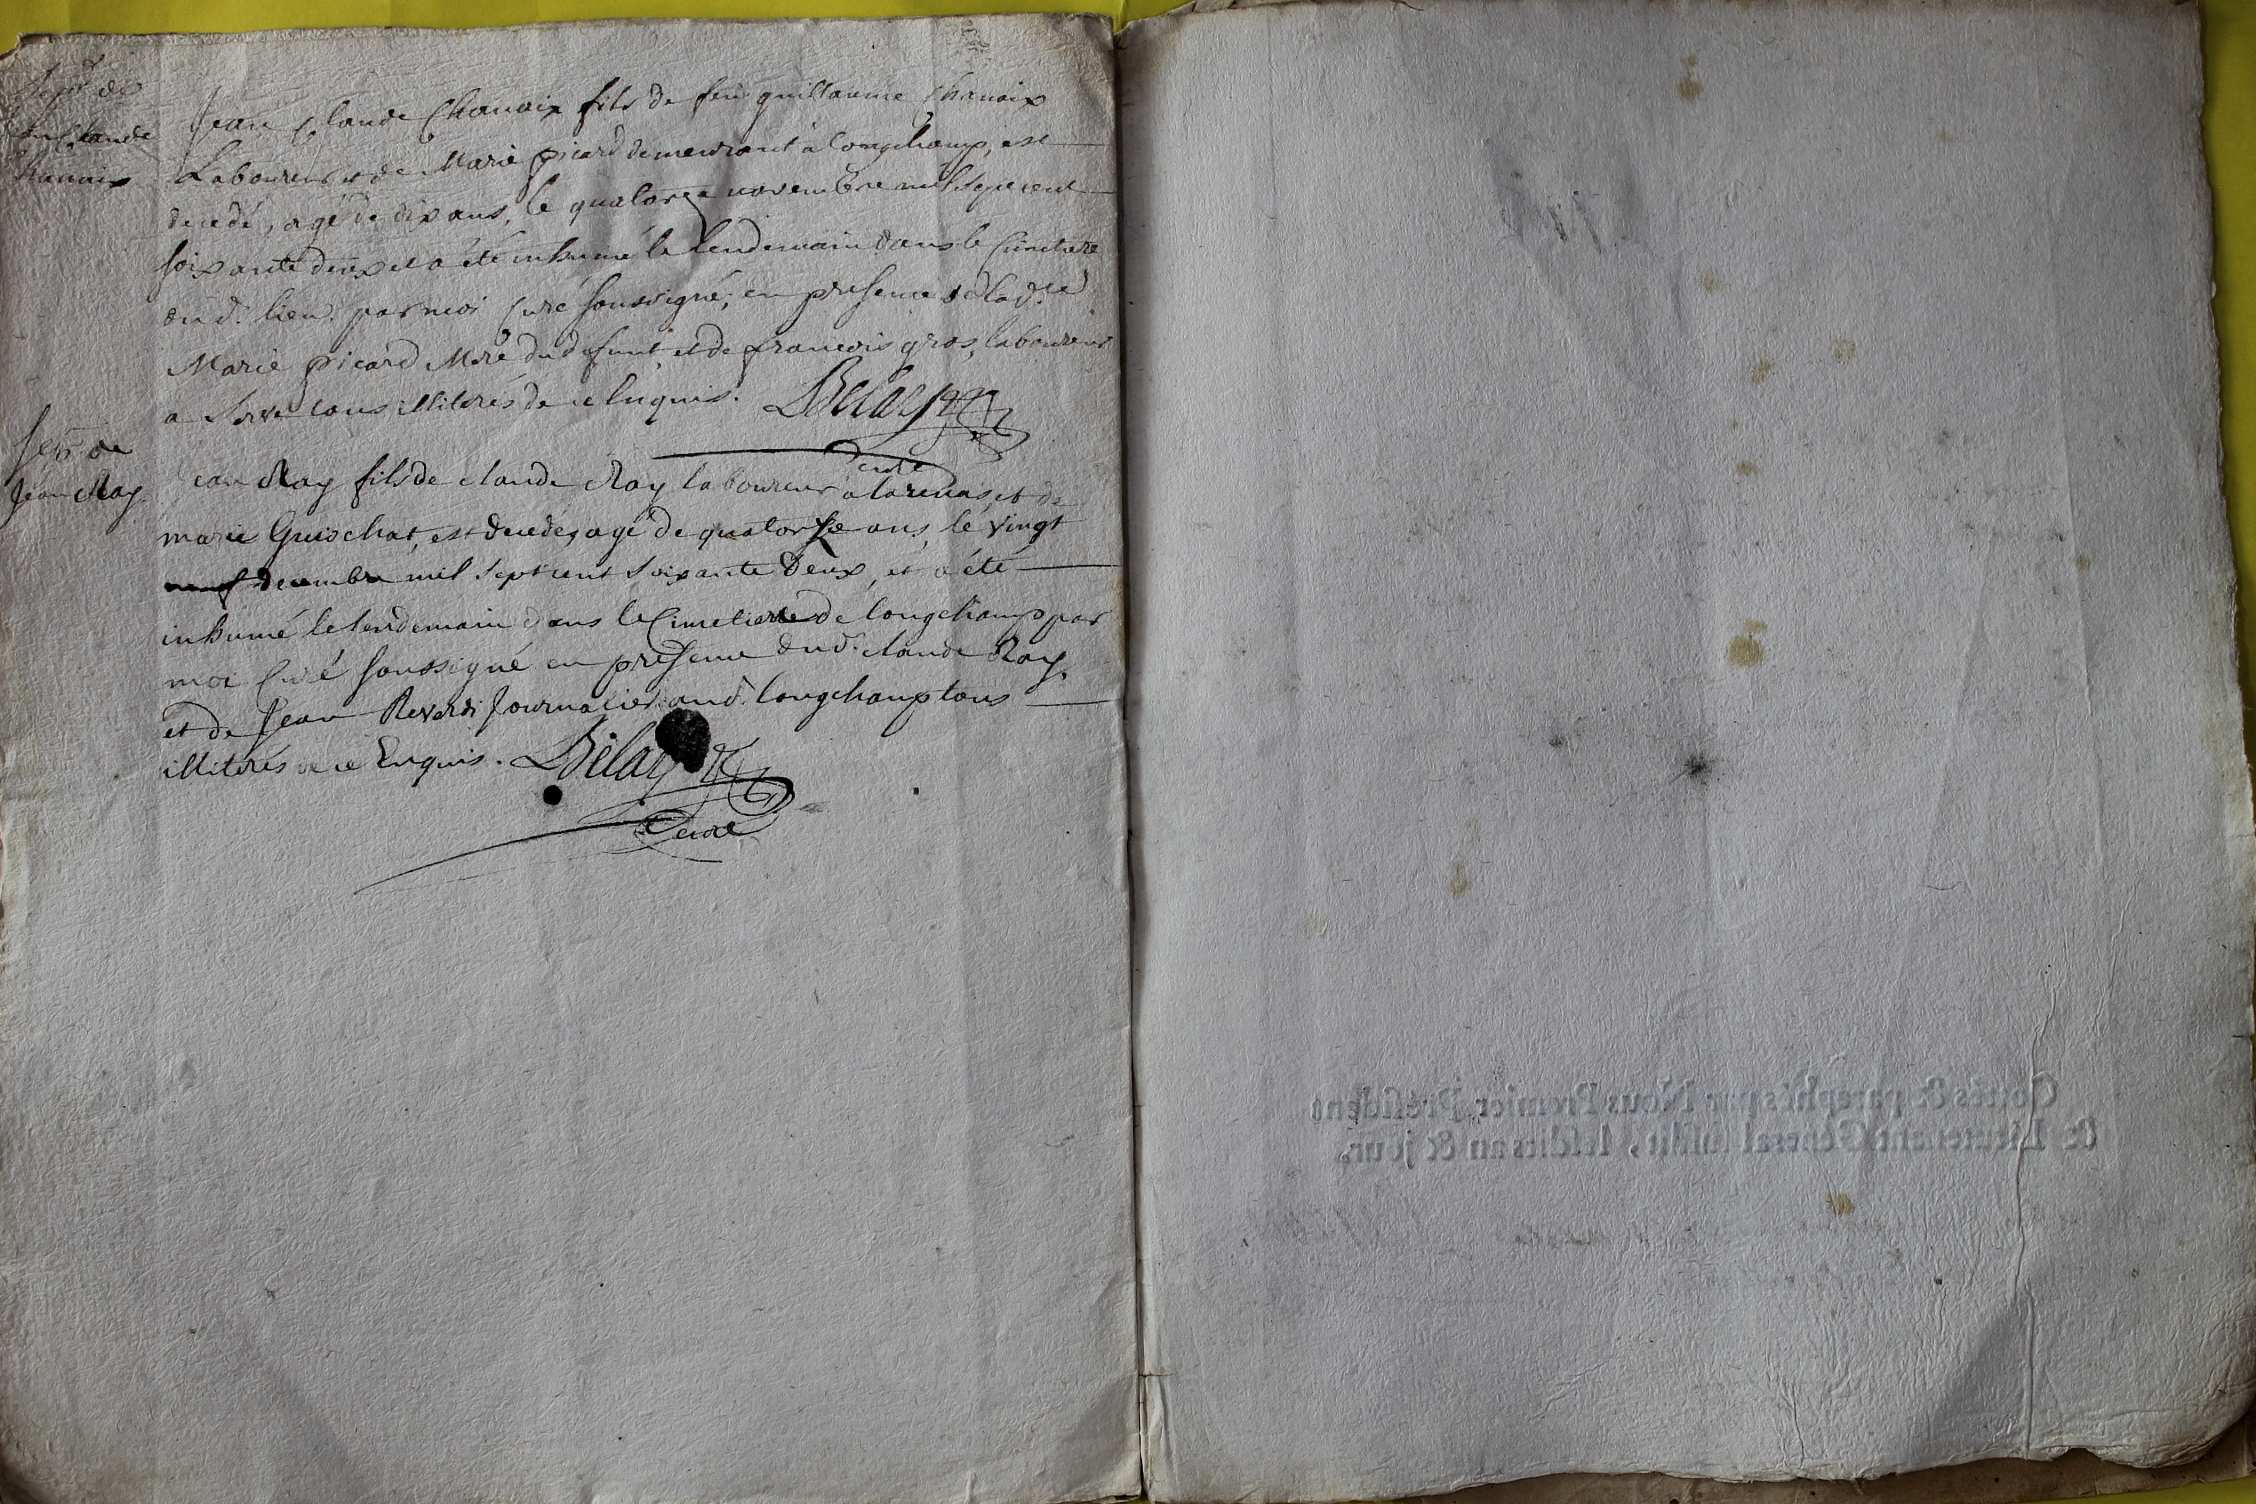 Sepre de
Jean Claude
Chanaix
Jean Claude Chanaix fils de feu guillaume Chanaix
Laboureur et de Marie picard demeurant à longchamp, est
decedé, agé de dix ans, le quatorze novembre mil sept cent
soixante deux et a été inhumé le lendemain dans le Cimetiere
du d. lieu. par moi curé soussigné, en presence de lad.te
Marie picard Mere du defunt et de francois gros, laboureur
a Serve tous illiterés de ce Enquis. Belay
curé
Sepre de
Jean Ray
Jean Ray fils de claude Ray laboureur a larenas, et de
marie Guiochat, est decedé, agé de quatorze ans, le vingt
neuf decembre mil sept cent soixante deux, et a été
inhumé le lendemain dans le Cimetiere de longchamp par
moi Curé soussigné en presence dud. claude Ray,
et de Jean Reverdi Journalier aud. longchamp tous
illiterés de ce Enquis. Belay
curé
Cottés & paraphés par Nous Premier Président
& Lieutenant Général susdit, lesdits an & jour.